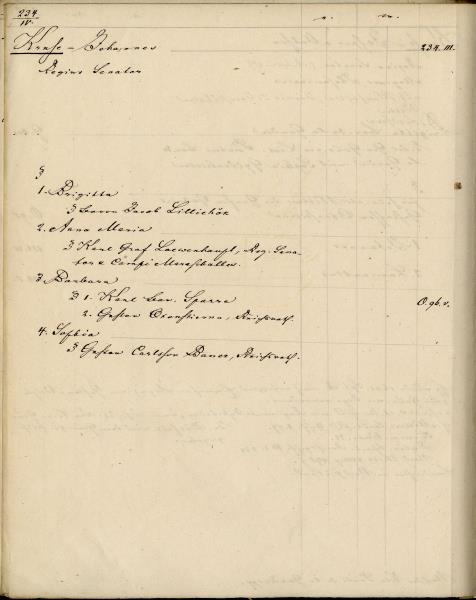 234
IV.
n. m.
Kruse – Johannes 234. III.
Regius Senator
3
1. Brigitta
3 Baron Jacob Lilliehök
2. Anna Maria
3 Karl Graf Loewenhaupt, Reg. Sena-
tor & Campi Mareschallus.
3. Barbara
3 1. Karl Bar. Sparre O. 96. v.
2. Gustav Oxenstierna, Reichsrath.
4. Sophia
3 Gustav Carlsson Baner, Reichsrath.